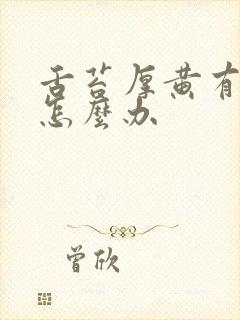 舌苔厚黄有
怎麼办
曾欣